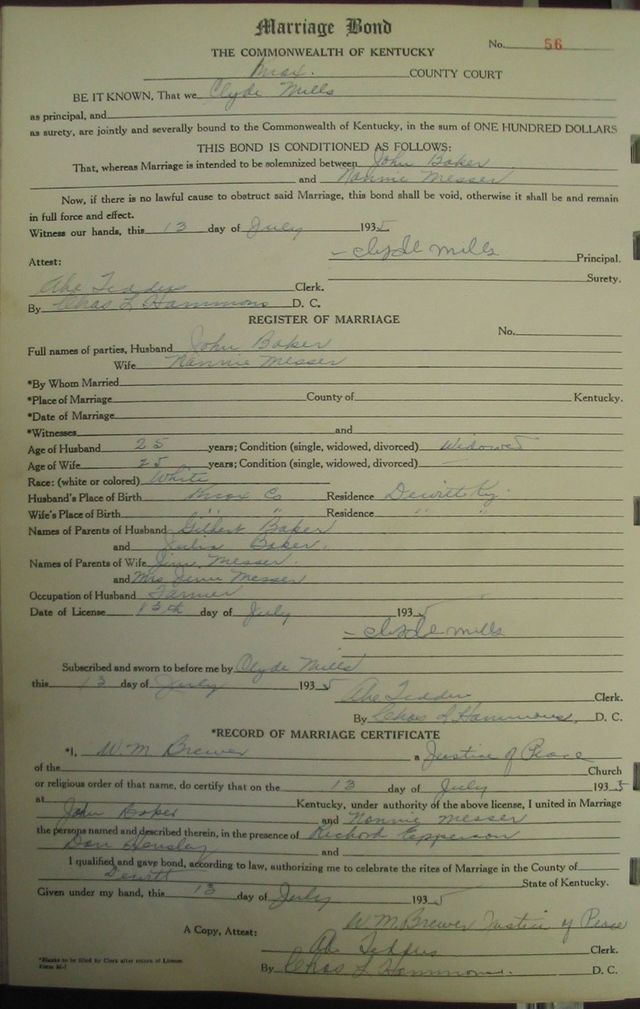 Marriage Bond
No. 56
THE COMMONWEALTH OF KENTUCKY
Knox. COUNTY COURT
BE IT KNOWN, That we Clyde Mills
as principal, and
as surety, are jointly and severally bound to the Commonwealth of Kentucky, in the sum of ONE HUNDRED DOLLARS
THIS BOND IS CONDITIONED AS FOLLOWS:
That, whereas Marriage is intended to be solemnized between John Baker
and Nannie Messer
Now, if there is no lawful cause to obstruct said Marriage, this bond shall be void, otherwise it shall be and remain
in full force and effect.
Witness our hands, this 13 day of July 1935
Clyde Mills Principal.
Attest: Surety.
Abe Clerk.
By Chas L Hammons D. C.
REGISTER OF MARRIAGE
No.
Full names of parties, Husband John Baker
Wife Nannie Messer
*By Whom Married
*Place of Marriage County of Kentucky.
*Date of Marriage
*Witnesses and
Age of Husband 25 years; Condition (single, widowed, divorced) Widowed
Age of Wife 25 years; Condition (single, widowed, divorced)
Race: (white or colored) White
Husband's Place of Birth Knox Co Residence Dewitt Ky.
Wife's Place of Birth " " Residence " "
Names of Parents of Husband Gilbert Baker
and Julia Baker.
Names of Parents of Wife Jim Messer.
and Mrs Jim Messer
Occupation of Husband Farmer
Date of License 13th day of July 1935
Clyde Mills
Subscribed and sworn to before me by Clyde Mills
this 13 day of July 1935
Abe Clerk.
By Chas L Hammons, D. C.
*RECORD OF MARRIAGE CERTIFICATE
*I, W M Brewer a Justice of Peace
of the Church
or religious order of that name, do certify that on the 13 day of July 1935
at Kentucky, under authority of the above license, I united in Marriage
John Baker and Nannie Messer
the persons named and described therein, in the presence of Richard Epperson
Dan Hensley and
I qualified and gave bond, according to law, authorizing me to celebrate the rites of Marriage in the County of
Dewitt State of Kentucky.
Given under my hand, this 13 day of July 1935
W M Brewer Justice of Peace
A Copy, Attest: Clerk.
By Chas L Hammons. D. C.
*Blanks to be filled by Clerk after return of License